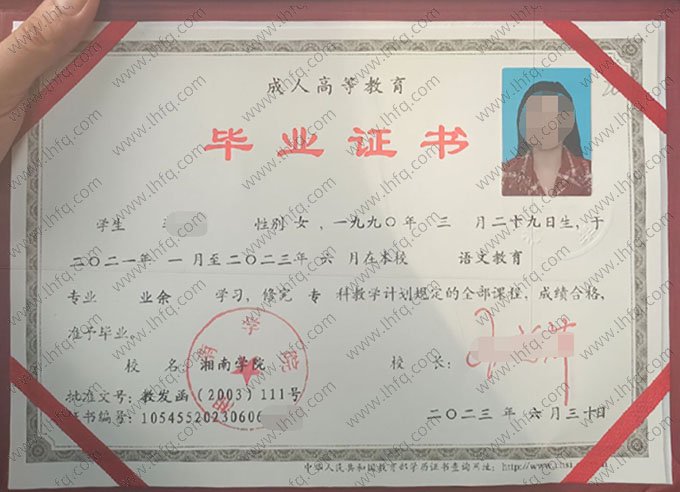 成人高等教育
毕业证书
学生 性别 女, 一九九〇年 三 月二十九日生, 于
二〇二一年 一 月至二〇二三年 六 月在本校 语文教育
专业 业余 学习, 修完 专 科教学计划规定的全部课程, 成绩合格,
准予毕业。
校 名 湘南学院 校 长:
批准文号: 教发函(2003)111号
证书编号: 10545520230606 二〇二三 年 六月三十日
中华人民共和国教育部学历证书查询网址: http://www.
www.lhfq.com